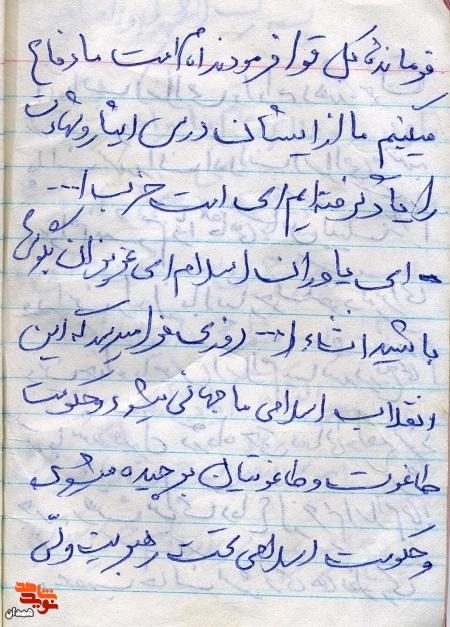 فرمانده کل قوا فرمودند امام امت ما دفاع
میکنیم ما از ایشان درس ایثار و شهادت
را یاد گرفته ایم ای امت حزب ا...
- ای یاوران اسلام ای عزیزان بگوش
باشید انشاء ا... روزی فرا میرسد که این
انقلاب اسلامی ما جهانی میشود و حکومت
طاغوت و طاغوتیان برچیده میشود
و حکومت اسلامی تحت رهبریت ولی
نوید شاهد
همدان